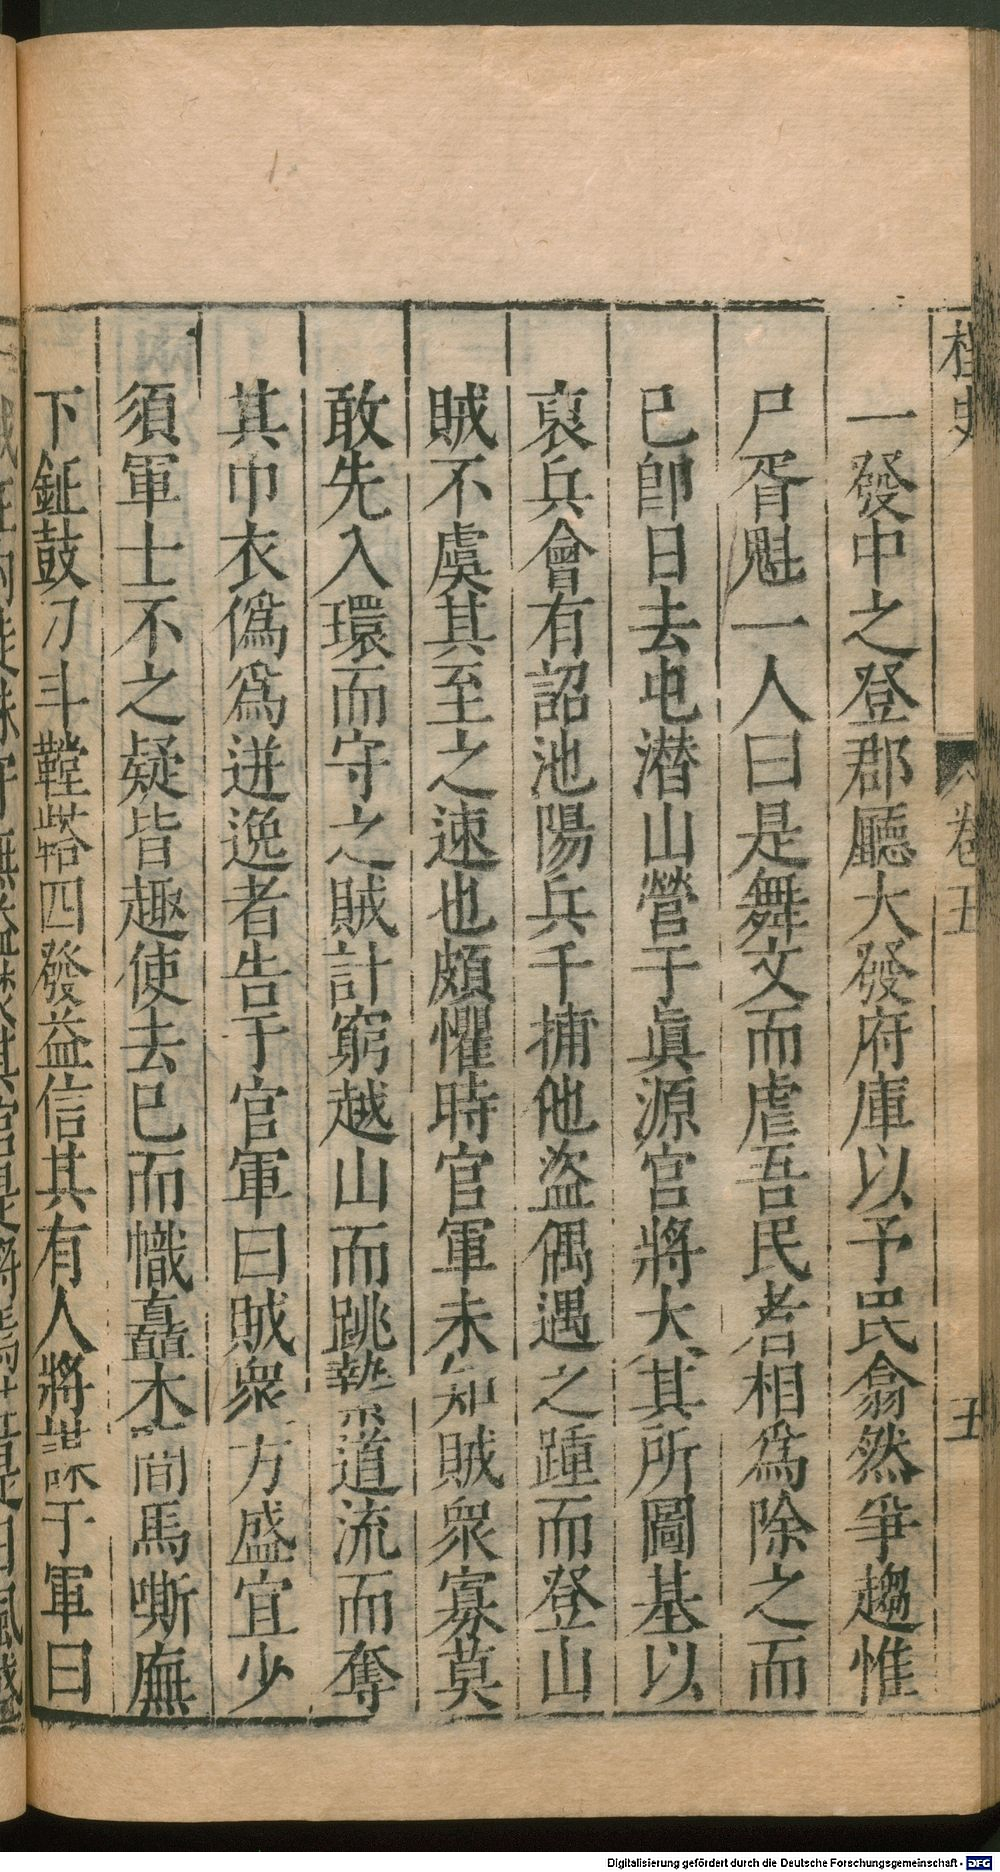 桯史
卷五
五
一發中之登郡廳大發府庫以予民翕然爭趨惟
尸胥魁一人曰是舞文而虐吾民者相爲除之而
已卽日去屯潛山營于眞源官將大其所圖基以
裒兵會有詔池陽兵千捕他盜偶遇之踵而登山
賊不虞其至之速也頗懼時官軍未知賊衆寡莫
敢先入環而守之賊計窮越山而跳執道流而奪
其巾衣僞爲迸逸者告于官軍曰賊衆方盛宜少
須軍士不之疑皆趣使去已而幟矗木間馬嘶廡
下鉦鼓刀斗鞺鞳四發益信其有人將謀于軍曰
Digitalisierung gefördert durch die Deutsche Forschungsgemeinschaft - DFG